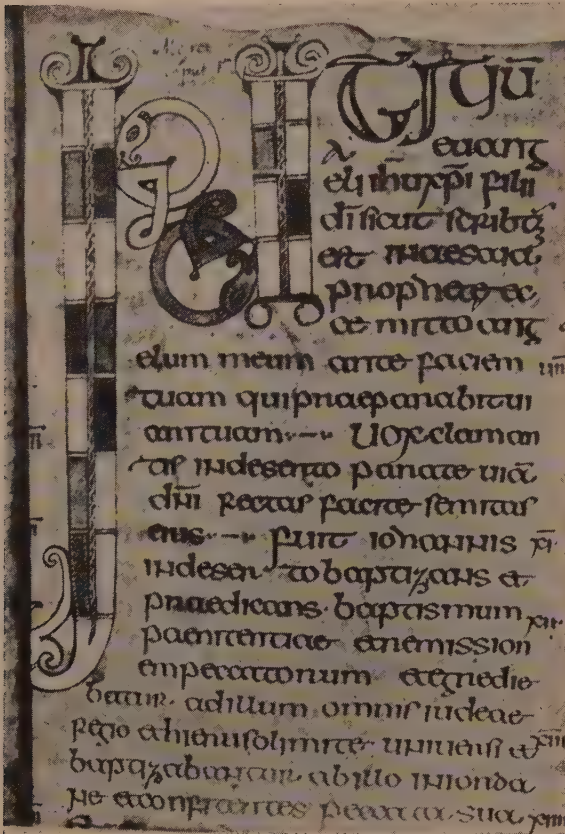 INITIŪ
euang
elii ihū xp̄i filii
dī sicut scribtū
est in aesaia
propheta ec
ce mitto ang
elum meum ante faciem
tuam qui praeparabit ui
am tuam Uox claman
tis in deserto parate uiā
dn̄i rectas facite semitas
eius fuit iohannis
in deserto baptizans et
praedicans baptismum
paenitentiae et remission
em peccatorum et egredie
batur ad illum omnis iudeae
regio et hierusolimite uniuersi et
baptizabantur ab illo in iorda
ne et confitentes peccata sua